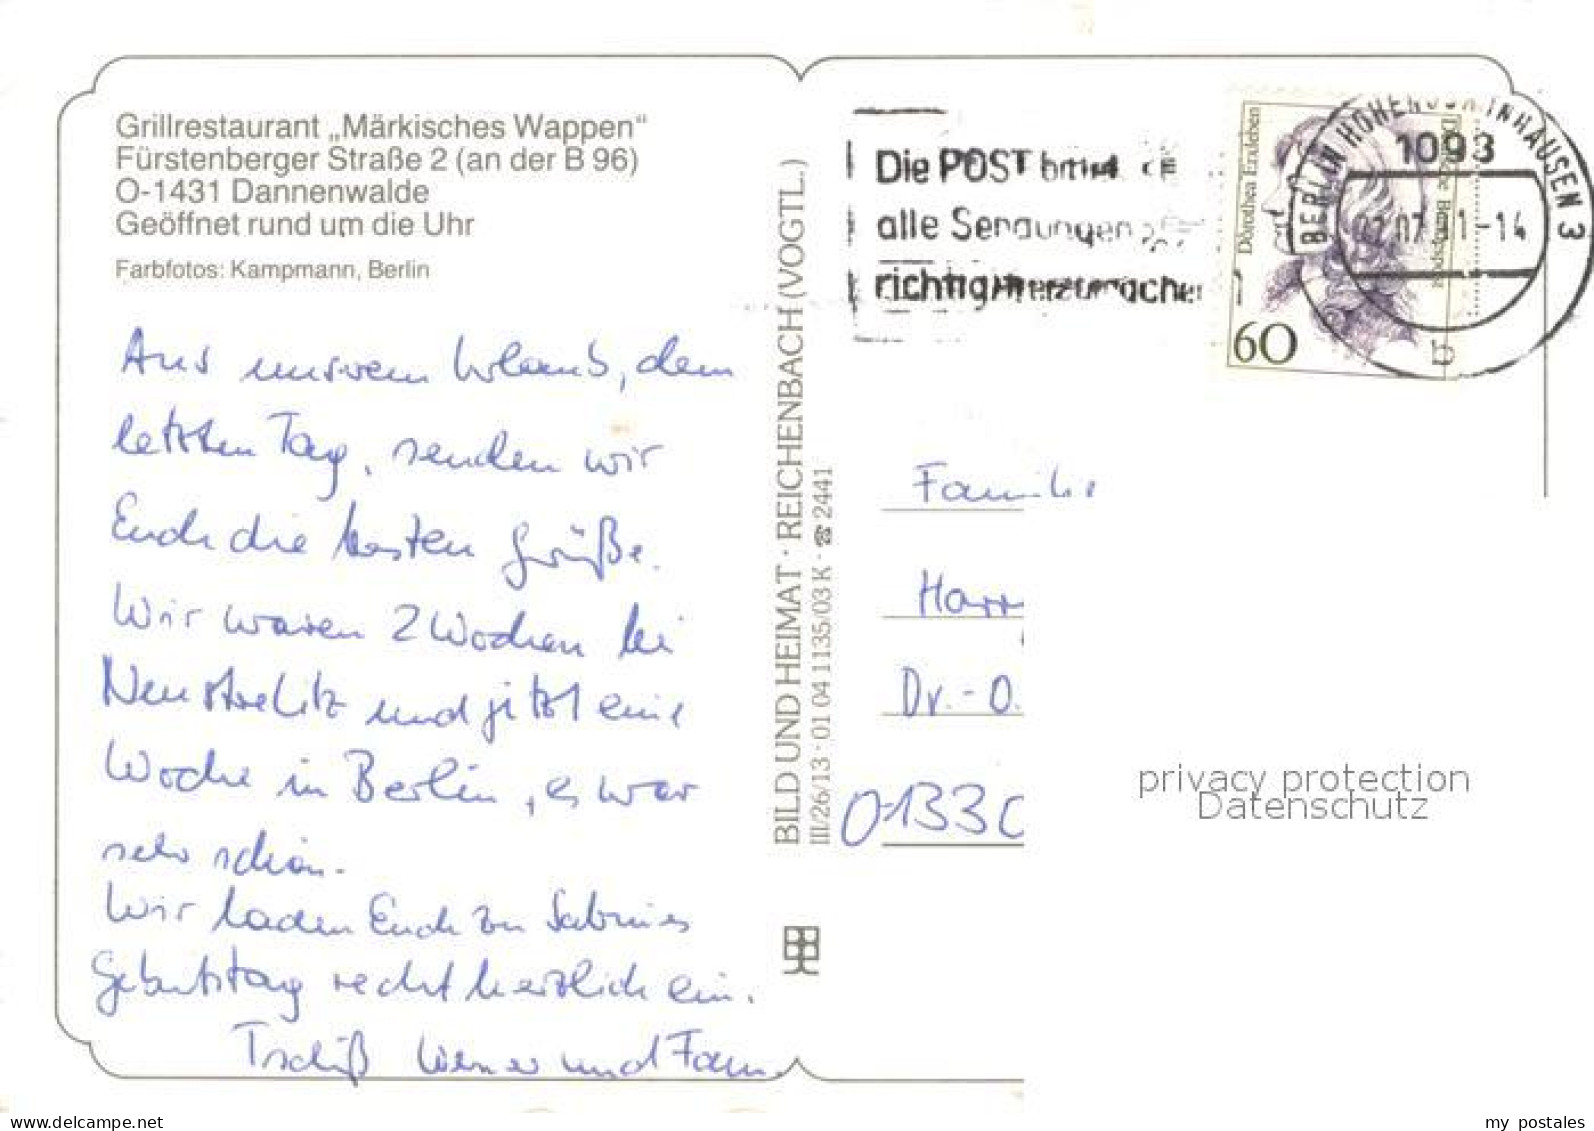 Grillrestaurant „Märkisches Wappen“
Fürstenberger Straße 2 (an der B 96)
O-1431 Dannenwalde
Geöffnet rund um die Uhr
Farbfotos: Kampmann, Berlin
Aus unserem Urlaub, dem
letzten Tag, senden wir
Euch die besten Grüße.
Wir waren 2 Wochen bei
Neustrelitz und jetzt eine
Woche in Berlin, es war
sehr schön.
Wir laden Euch zu Sabines
Geburtstag recht herzlich ein.
Tschüß Werner und Fam.
BILD UND HEIMAT · REICHENBACH (VOGTL.)
III/26/13 · 01 04 1135/03 K - ☎ 2441
Die POST
alle Sendungen
richtig
Dorothea Erxleben
Deutsche Bundespost
60
BERLIN HOHENSCHÖNHAUSEN 3
1093
Familie
Harry
Dr.-O.
O-1330
privacy protection
Datenschutz
www.delcampe.net
my_postales